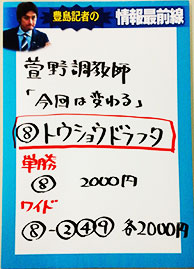 豊島記者の
情報最前線
萱野調教師
「今回は変わる」
⑧トウショウドラック
単勝
⑧ 2000円
ワイド
⑧-②④⑨ 各2000円